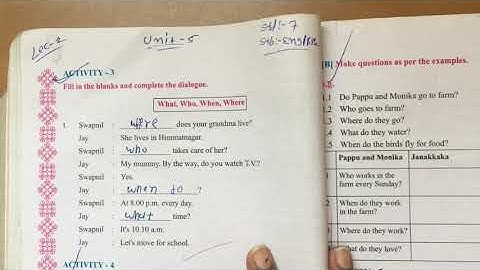 Lec-2
Unit-5
std:- 7
Sub:- English
ACTIVITY - 3
Fill in the blanks and complete the dialogue.
What, Who, When, Where
1. Swapnil : where does your grandma live?
Jay : She lives in Himmatnagar.
Swapnil : who takes care of her?
Jay : My mummy. By the way, do you watch T.V.?
Swapnil : Yes.
Jay : when do ?
Swapnil : At 8.00 p.m. every day.
Jay : what time?
Swapnil : It's 10.10 a.m.
Jay : Let's move for school.
ACTIVITY - 4
[B] Make questions as per the examples.
1.1 Do Pappu and Monika go to farm?
1.2 Who goes to farm?
1.3 Where do they go?
1.4 What do they water?
1.5 When do the birds fly for food?
Pappu and Monika Janakkaka
1 Who works in the
farm every Sunday?
2 When do they work
in the farm?
3 Where do they work?
What do they love?